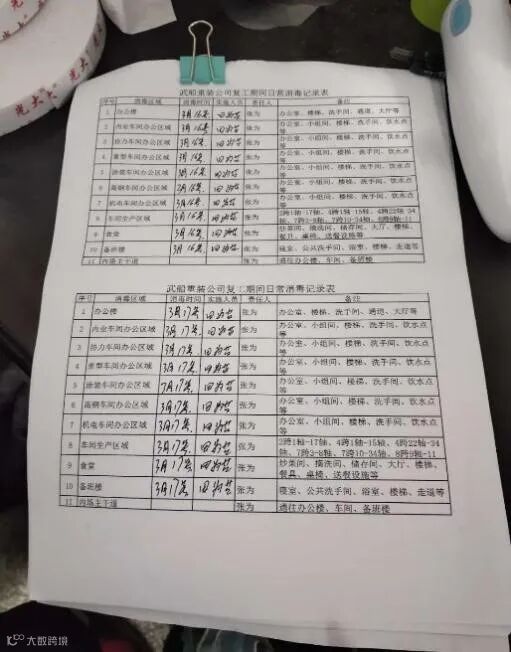 光大
武船重装公司复工期间日常消毒记录表
序号 消毒区域 消毒时间 实施人员 责任人 备注
1 办公楼 3月16号 张为 办公室、楼梯、洗手间、通道、大厅等
2 内业车间办公区域 3月16号 张为 办公室、小组间、楼梯、洗手间、饮水点等
3 协力车间办公区域 3月16号 张为 办公室、小组间、楼梯、洗手间、饮水点等
4 重型车间办公区域 3月16号 张为 办公室、小组间、楼梯、洗手间、饮水点等
5 涂装车间办公区域 3月16号 张为 办公室、小组间、楼梯、洗手间、饮水点等
6 高钢车间办公区域 3月16号 张为 办公室、小组间、楼梯、洗手间、饮水点等
7 机电车间办公区域 3月16号 张为 办公室、小组间、楼梯、洗手间、饮水点等
8 车间生产区域 3月16号 张为 2跨1轴-17轴、4跨1轴-15轴、4跨22轴-34轴、7跨3-8轴、7跨10-34轴、8跨9轴-11
9 食堂 3月16号 张为 炒菜间、摘洗间、储存间、大厅、楼梯、餐具、桌椅、送餐设施等
10 备班楼 3月16号 张为 寝室、公共洗手间、浴室、楼梯、走道等
11 内场主干道 张为 通往办公楼、车间、备班楼
武船重装公司复工期间日常消毒记录表
序号 消毒区域 消毒时间 实施人员 责任人 备注
1 办公楼 3月17号 张为 办公室、楼梯、洗手间、通道、大厅等
2 内业车间办公区域 3月17号 张为 办公室、小组间、楼梯、洗手间、饮水点等
3 协力车间办公区域 3月17号 张为 办公室、小组间、楼梯、洗手间、饮水点等
4 重型车间办公区域 3月17号 张为 办公室、小组间、楼梯、洗手间、饮水点等
5 涂装车间办公区域 3月17号 张为 办公室、小组间、楼梯、洗手间、饮水点等
6 高钢车间办公区域 3月17号 张为 办公室、小组间、楼梯、洗手间、饮水点等
7 机电车间办公区域 3月17号 张为 办公室、小组间、楼梯、洗手间、饮水点等
8 车间生产区域 3月17号 张为 2跨1轴-17轴、4跨1轴-15轴、4跨22轴-34轴、7跨3-8轴、7跨10-34轴、8跨9轴-11
9 食堂 3月17号 张为 炒菜间、摘洗间、储存间、大厅、楼梯、餐具、桌椅、送餐设施等
10 备班楼 3月17号 张为 寝室、公共洗手间、浴室、楼梯、走道等
11 内场主干道 张为 通往办公楼、车间、备班楼
大数跨境